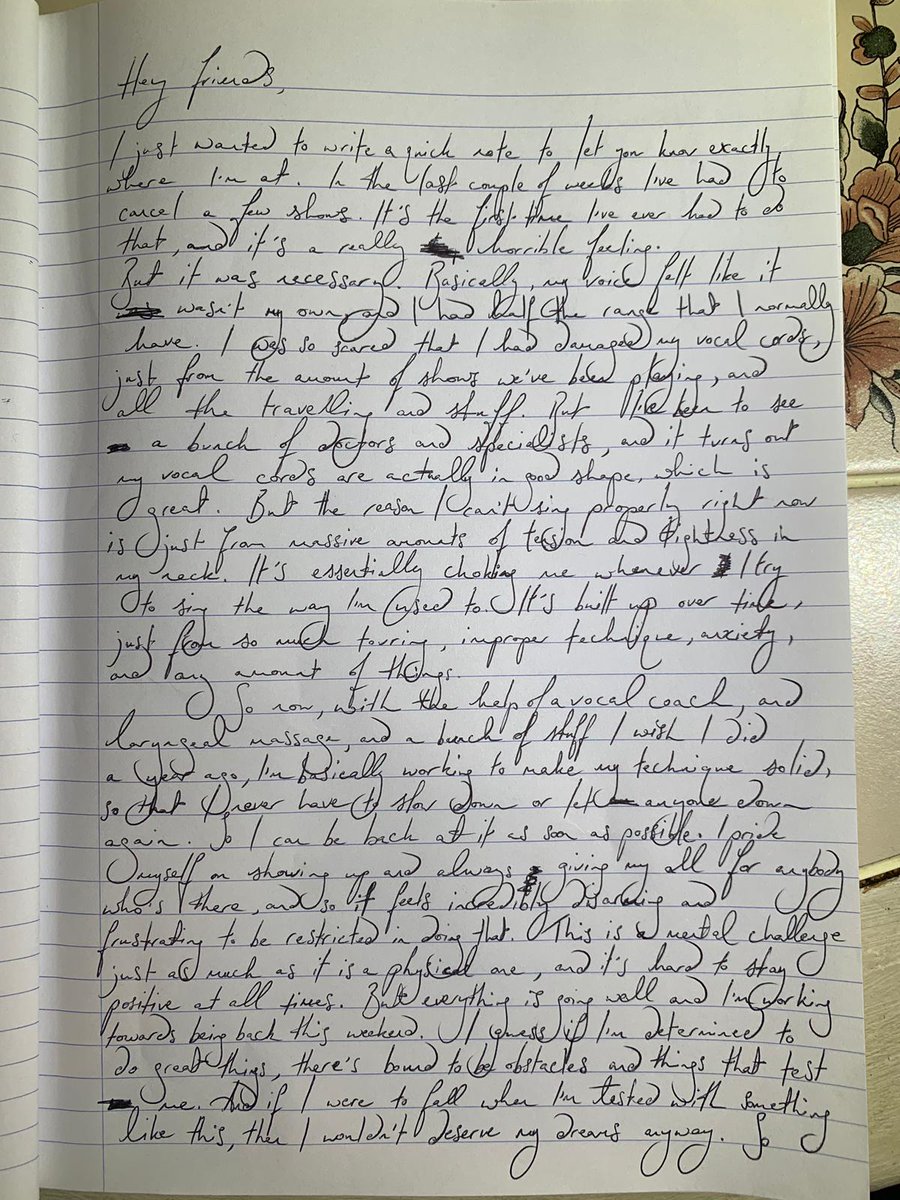 Hey friends,
I just wanted to write a quick note to let you know exactly
where I'm at. In the last couple of weeks I've had to
cancel a few shows. It's the first time I've ever had to do
that, and it's a really horrible feeling.
But it was necessary. Basically, my voice felt like it
wasn't my own, and I had half the range that I normally
have. I was so scared that I had damaged my vocal cords,
just from the amount of shows we've been playing, and
all the travelling and stuff. But I've been to see
a bunch of doctors and specialists, and it turns out
my vocal cords are actually in good shape, which is
great. But the reason I can't sing properly right now
is just from massive amounts of tension and tightness in
my neck. It's essentially choking me whenever I try
to sing the way I'm used to. It's built up over time,
just from so much touring, improper technique, anxiety,
and any amount of things.
So now, with the help of a vocal coach, and
laryngeal massage, and a bunch of stuff I wish I did
a year ago, I'm basically working to make my technique solid,
so that I never have to slow down or let anyone down
again. So I can be back at it as soon as possible. I pride
myself on showing up and always giving my all for anybody
who's there, and so it feels incredibly disarming and
frustrating to be restricted in doing that. This is a mental challenge
just as much as it is a physical one, and it's hard to stay
positive at all times. But everything is going well and I'm working
towards being back this weekend. I guess if I'm determined to
do great things, there's bound to be obstacles and things that test
me. And if I were to fall when I'm tested with something
like this, then I wouldn't deserve my dreams anyway. So